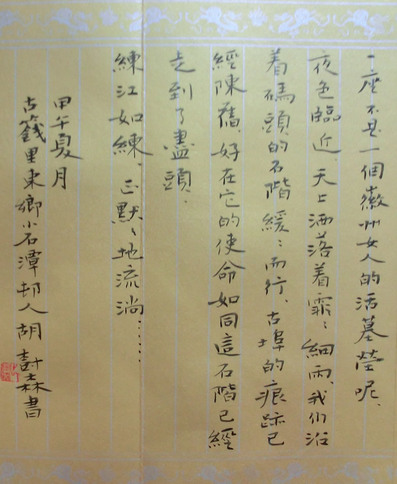 一座不是一個徽州女人的活墓塋呢、
夜色臨近、天上洒落着霏〻細雨、我们沿
着碼頭的石階緩〻而行、古埠的痕跡已
經陳舊、好在它的使命如同這石階已經
走到了盡頭.
練江如練、正默〻地流淌……
甲午夏月
古箋里東鄉小石潭邨人胡 森書